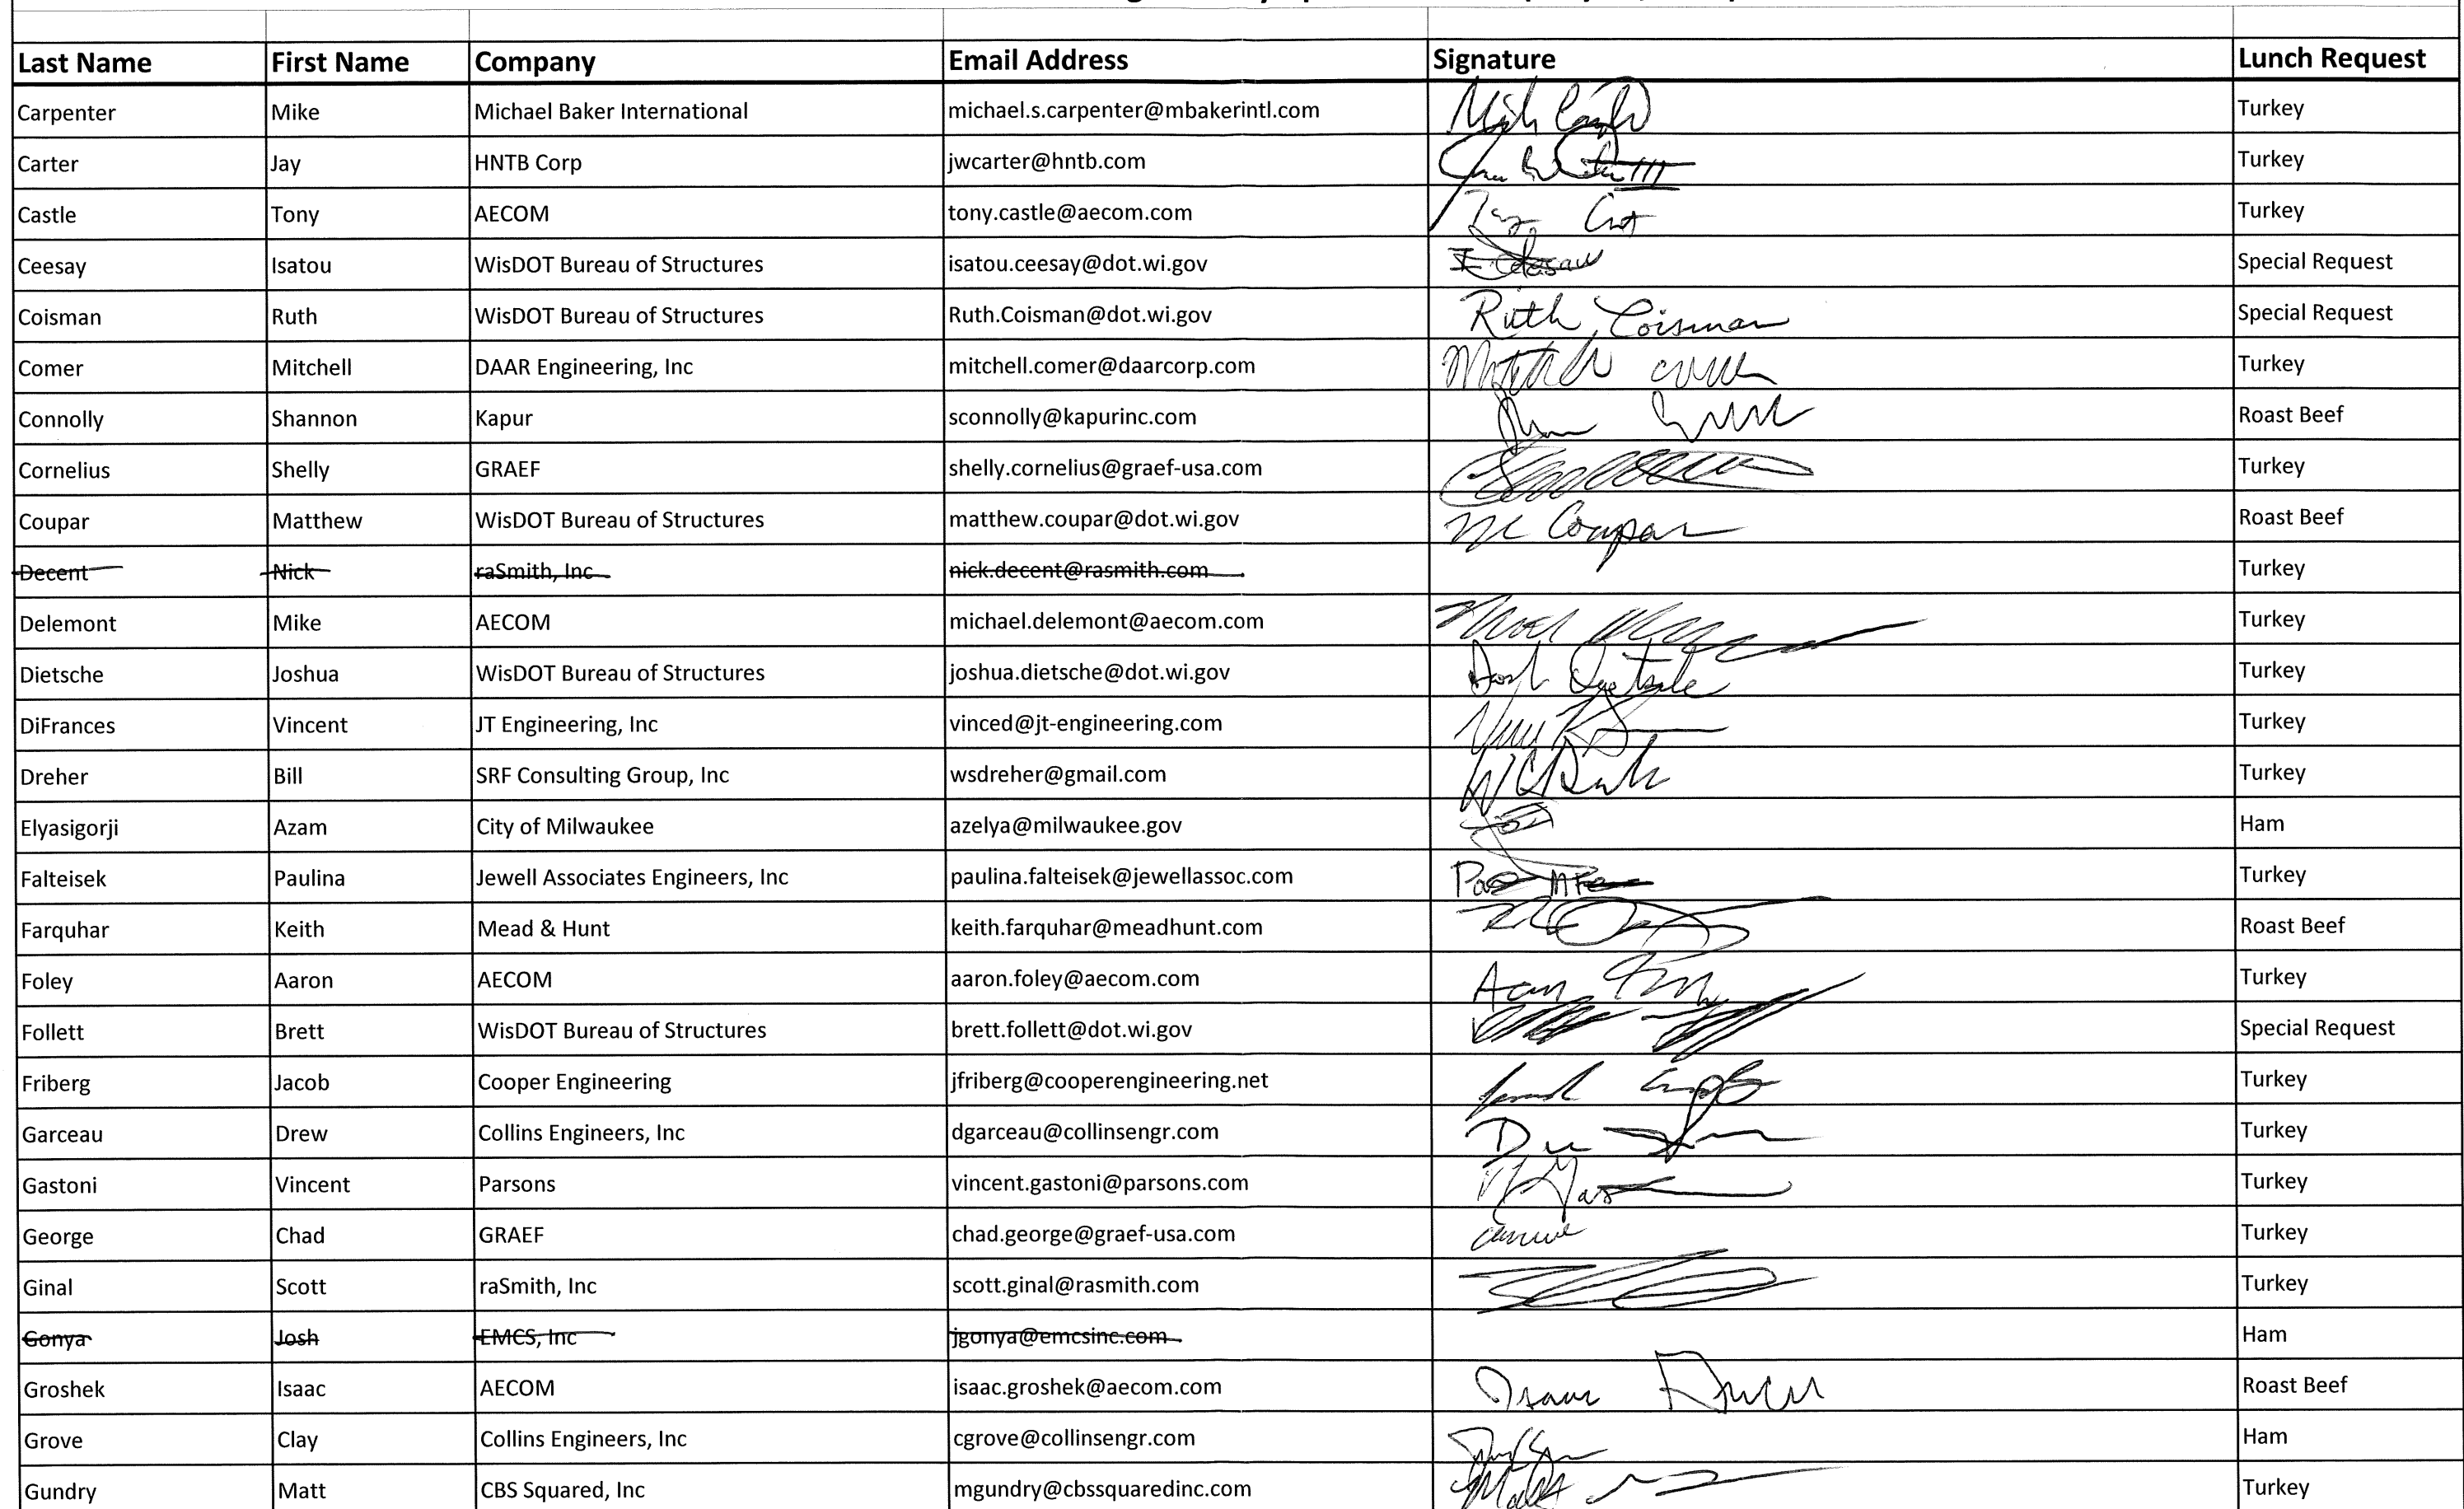 Last Name First Name Company Email Address Signature Lunch Request
Carpenter Mike Michael Baker International michael.s.carpenter@mbakerintl.com Turkey
Carter Jay HNTB Corp jwcarter@hntb.com Turkey
Castle Tony AECOM tony.castle@aecom.com Turkey
Ceesay Isatou WisDOT Bureau of Structures isatou.ceesay@dot.wi.gov Special Request
Coisman Ruth WisDOT Bureau of Structures Ruth.Coisman@dot.wi.gov Ruth Coisman Special Request
Comer Mitchell DAAR Engineering, Inc mitchell.comer@daarcorp.com Turkey
Connolly Shannon Kapur sconnolly@kapurinc.com Roast Beef
Cornelius Shelly GRAEF shelly.cornelius@graef-usa.com Turkey
Coupar Matthew WisDOT Bureau of Structures matthew.coupar@dot.wi.gov M Coupar Roast Beef
Decent Nick raSmith, Inc nick.decent@rasmith.com Turkey
Delemont Mike AECOM michael.delemont@aecom.com Turkey
Dietsche Joshua WisDOT Bureau of Structures joshua.dietsche@dot.wi.gov Turkey
DiFrances Vincent JT Engineering, Inc vinced@jt-engineering.com Turkey
Dreher Bill SRF Consulting Group, Inc wsdreher@gmail.com Turkey
Elyasigorji Azam City of Milwaukee azelya@milwaukee.gov Ham
Falteisek Paulina Jewell Associates Engineers, Inc paulina.falteisek@jewellassoc.com Turkey
Farquhar Keith Mead & Hunt keith.farquhar@meadhunt.com Roast Beef
Foley Aaron AECOM aaron.foley@aecom.com Turkey
Follett Brett WisDOT Bureau of Structures brett.follett@dot.wi.gov Special Request
Friberg Jacob Cooper Engineering jfriberg@cooperengineering.net Turkey
Garceau Drew Collins Engineers, Inc dgarceau@collinsengr.com Turkey
Gastoni Vincent Parsons vincent.gastoni@parsons.com Turkey
George Chad GRAEF chad.george@graef-usa.com Turkey
Ginal Scott raSmith, Inc scott.ginal@rasmith.com Turkey
Gonya Josh EMCS, Inc jgonya@emcsinc.com Ham
Groshek Isaac AECOM isaac.groshek@aecom.com Roast Beef
Grove Clay Collins Engineers, Inc cgrove@collinsengr.com Ham
Gundry Matt CBS Squared, Inc mgundry@cbssquaredinc.com Turkey